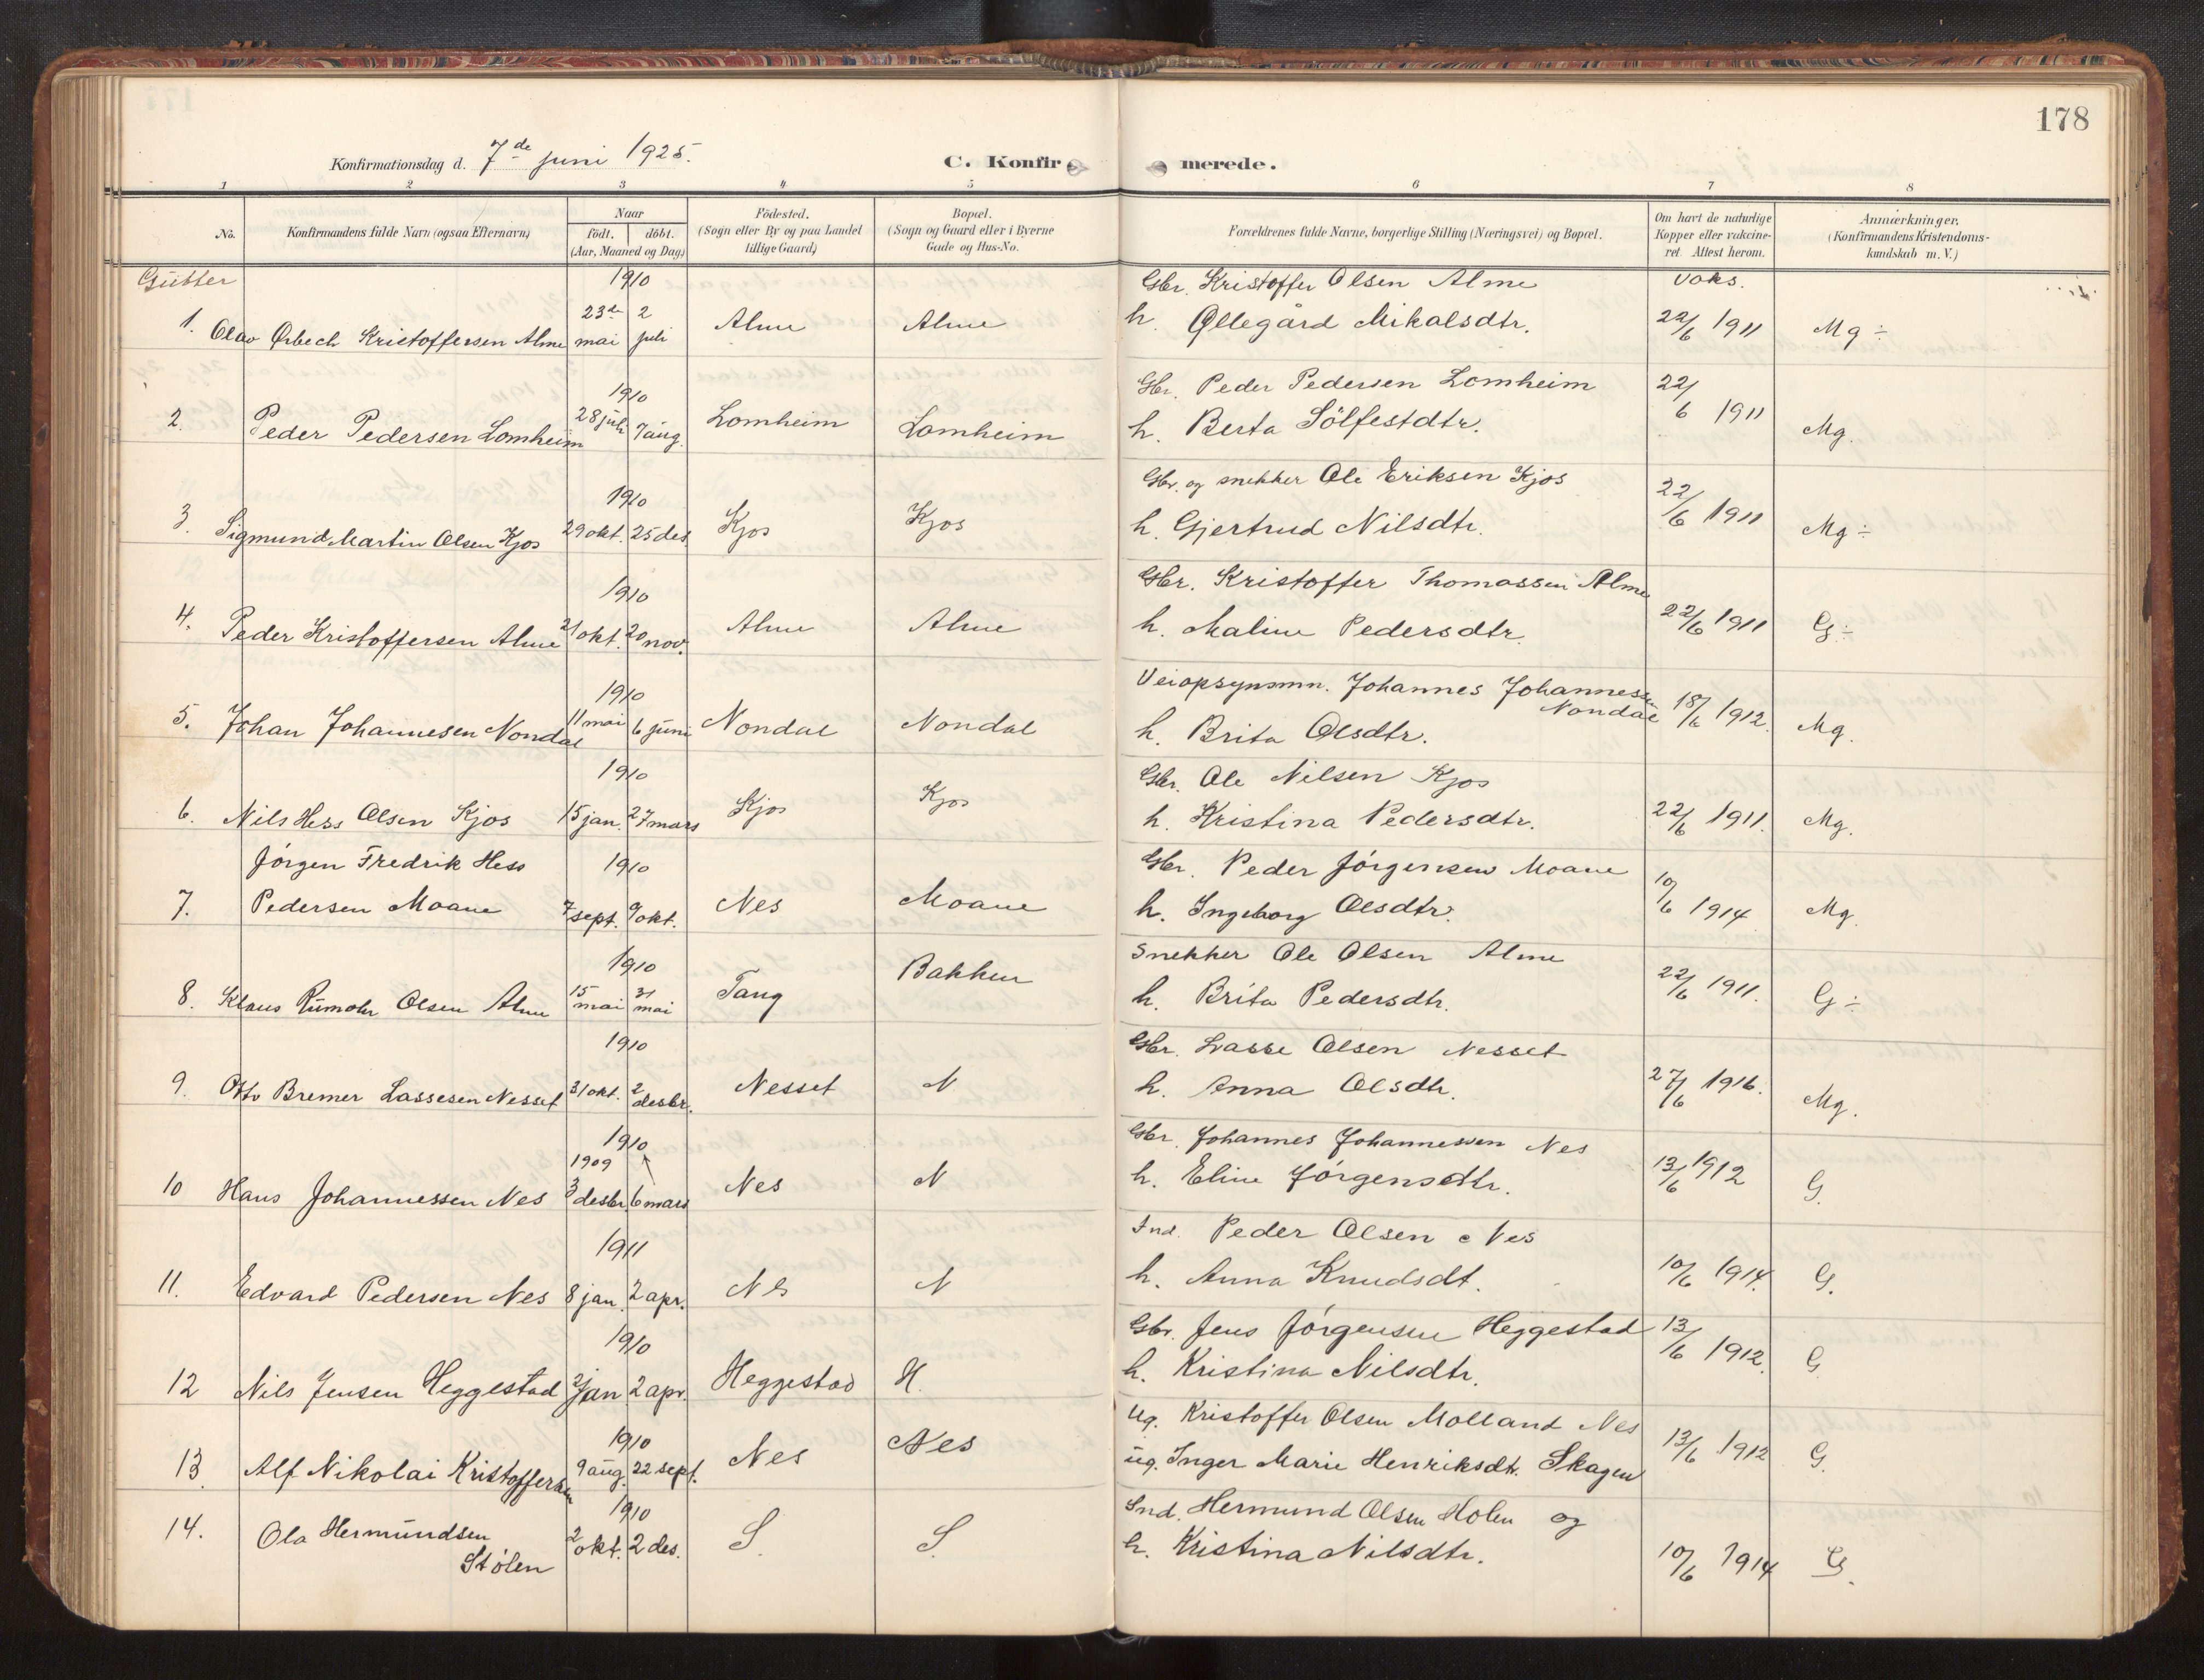 178
Konfirmationsdag d. 7de juni 1925.
C. Konfirmerede.
1 2 3 4 5 6 7 8
No.
Konfirmandens fulde Navn (ogsaa Efternavn)
Naar
födt. döbt.
(Aar, Maaned og Dag)
Födested.
(Sogn eller By og paa Landet
tillige Gaard)
Bopæl.
(Sogn og Gaard eller i Byerne
Gade og Hus-No.
Forældrenes fulde Navne, borgerlige Stilling (Næringsvei) og Bopæl.
Om havt de naturlige
Kopper eller vakcine-
ret. Attest herom.
Anmærkninger,
(Konfirmandens Kristendoms-
kundskab m. V.)
Gutter
1910
Gbr. Kristoffer Olsen Alme
vaks.
1. Olav Ørbech Kristoffersen Alme 23de mai 2 juli Alme Alme
h. Øllegård Mikalsdtr. 22/6 1911 Mg ÷
1910
Gbr. Peder Pedersen Lomheim
2. Peder Pedersen Lomheim 28 juli 7 aug. Lomheim Lomheim
h. Berta Sölfestdtr. 22/6 1911 Mg.
1910
Gbr. og snekker Ole Eriksen Kjos
3. Sigmund Martin Olsen Kjos 29 okt. 25 des. Kjos Kjos
h. Gjertrud Nilsdtr. 22/6 1911 Mg ÷
1910
Gbr. Kristoffer Thomassen Alme
4. Peder Kristoffersen Alme 21 okt. 20 nov. Alme Alme
h. Maline Pedersdtr. 22/6 1911 G ÷
1910
Veiopsynsmn. Johannes Johannessen
Nondal
5. Johan Johannesen Nondal 11 mai 6 juni Nondal Nondal
h. Brita Olsdtr. 18/6 1912. Mg.
1910
Gbr. Ole Nilsen Kjos
6. Nils Hess Olsen Kjos 15 jan. 27 mars Kjos Kjos
h. Kristina Pedersdtr. 22/6 1911. Mg.
Jörgen Fredrik Hess
1910
Gbr. Peder Jörgensen Moane
7. Pedersen Moane 7 sept. 9 okt. Nes Moane
h. Ingeborg Olsdtr. 10/6 1914 Mg.
1910
Snekker Ole Olsen Alme
8. Klaus Rumohr Olsen Alme 15 mai 31 mai Tang Bakken
h. Brita Pedersdtr. 22/6 1911. G ÷
1910
Gbr. Lasse Olsen Nesset
9. Otto Bremer Lassesen Nesset 31 okt. 2 desbr. Nesset N
h. Anna Olsdtr. 27/6 1916. Mg.
1910
Gbr. Johannes Johannessen Nes
1909
10 Hans Johannessen Nes 3 desbr. 6 mars Nes N
h. Eline Jörgensdtr. 13/6 1912 G.
1911
Ind. Peder Olsen Nes
11. Edvard Pedersen Nes 8 jan. 2 apr. Nes N
h. Anna Knudsdt. 10/6 1914. G.
1910
Gbr. Jens Jörgensen Heggestad
12 Nils Jensen Heggestad jan 2 apr. Heggestad H.
h. Kristina Nilsdtr. 13/6 1912. G
1910
Ug. Kristoffer Olsen Molland Nes
13 Alf Nikolai Kristoffersen 9 aug. 22 sept. Nes Nes
ug. Inger Marie Henriksdtr. Skagen 13/6 1912 G.
1910
Ind. Hermund Olsen Holen og
14. Ola Hermundsen
Stølen 2 okt. 2 des. S. S.
h. Kristina Nilsdtr. 10/6 1914 G.